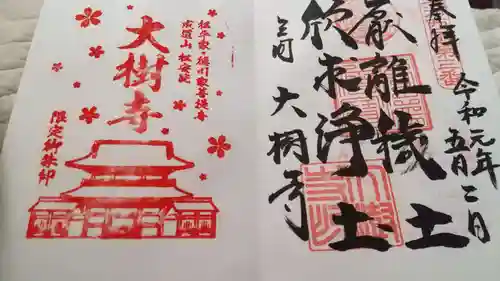 奉拝
令和元年
五月二日
厭離穢土
欣求浄土
三河 大樹寺
松平家・徳川家菩提寺
成道山 松安院
大樹寺
限定御朱印